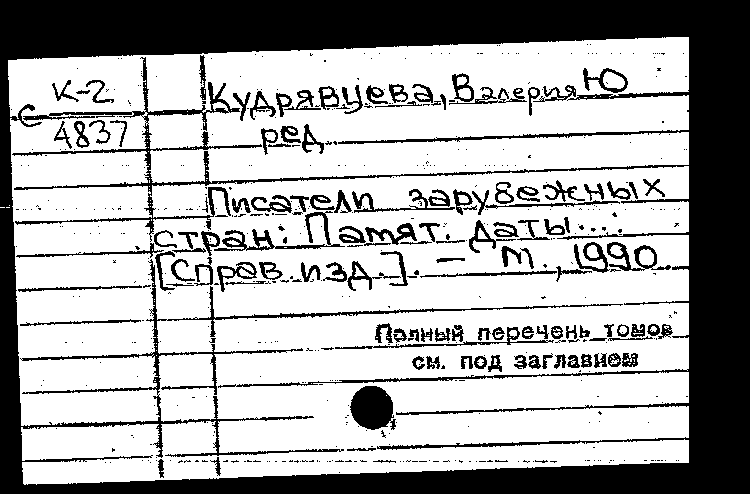 К-2
С
4837
Кудрявцева, Валерия Ю
ред.
Писатели зарубежных
стран: Памят. даты...:
[Справ. изд.]. – М., 1990
Полный перечень томов
см. под заглавием